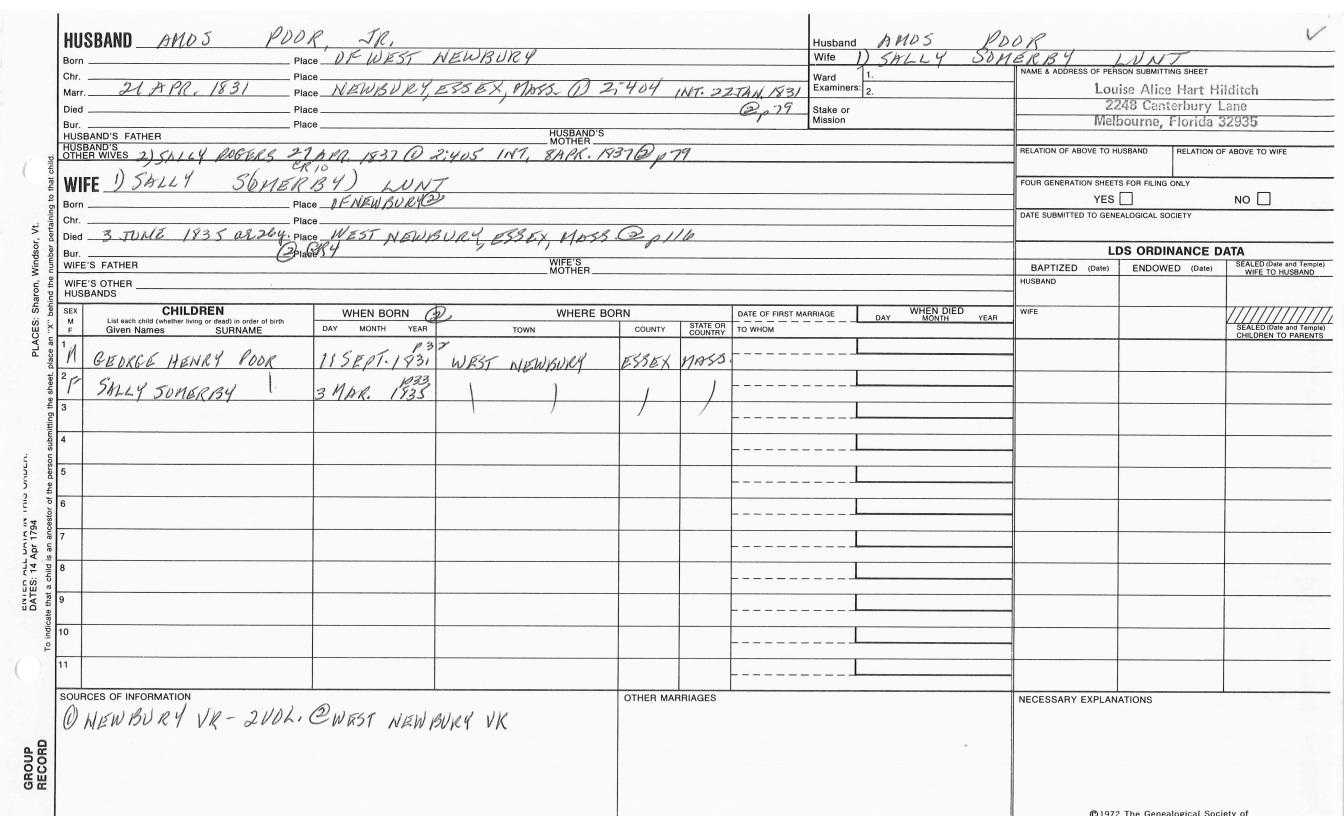 HUSBAND AMOS POOR, JR.
Born Place OF WEST NEWBURY
Chr. Place
Marr. 21 APR. 1831 Place NEWBURY, ESSEX, MASS. ① 2:404 INT. 22 JAN. 1831
② p79
Died Place
Bur. Place
HUSBAND'S FATHER HUSBAND'S MOTHER
HUSBAND'S OTHER WIVES 2) SALLY ROGERS 27 APR. 1837 ① 2:405 INT. 8 APR. 1837 ② p79
CR10
Husband AMOS POOR
Wife 1) SALLY SOMERBY LUNT
Ward Examiners: 1.
2.
Stake or Mission
NAME & ADDRESS OF PERSON SUBMITTING SHEET
Louise Alice Hart Hilditch
2248 Canterbury Lane
Melbourne, Florida 32935
RELATION OF ABOVE TO HUSBAND RELATION OF ABOVE TO WIFE
FOUR GENERATION SHEETS FOR FILING ONLY
YES NO
DATE SUBMITTED TO GENEALOGICAL SOCIETY
WIFE 1) SALLY S(OMERBY) LUNT
Born Place OF NEWBURY ②
Chr. Place
Died 3 JUNE 1835 ae 26y. Place WEST NEWBURY, ESSEX, MASS ② p116
Bur. ② Place GR4
WIFE'S FATHER WIFE'S MOTHER
WIFE'S OTHER HUSBANDS
LDS ORDINANCE DATA
BAPTIZED (Date) ENDOWED (Date) SEALED (Date and Temple) WIFE TO HUSBAND
HUSBAND
WIFE
SEALED (Date and Temple) CHILDREN TO PARENTS
SEX M F
CHILDREN
List each child (whether living or dead) in order of birth
Given Names SURNAME
WHEN BORN ② WHERE BORN
DAY MONTH YEAR TOWN COUNTY STATE OR COUNTRY
DATE OF FIRST MARRIAGE
TO WHOM
WHEN DIED
DAY MONTH YEAR
p32
1 M GEORGE HENRY POOR 11 SEPT. 1831 WEST NEWBURY ESSEX MASS.
p33
2 F SALLY SOMERBY 3 MAR. 1835
3
4
5
6
7
8
9
10
11
SOURCES OF INFORMATION
① NEWBURY VR - 2 VOL. ② WEST NEWBURY VR
OTHER MARRIAGES
NECESSARY EXPLANATIONS
©1972 The Genealogical Society of
PLACES: Sharon, Windsor, Vt.
To indicate that a child is an ancestor of the person submitting the sheet, place an "X" behind the number pertaining to that child.
ENTER ALL DATA IN THIS ORDER:
DATES: 14 Apr 1794
GROUP RECORD